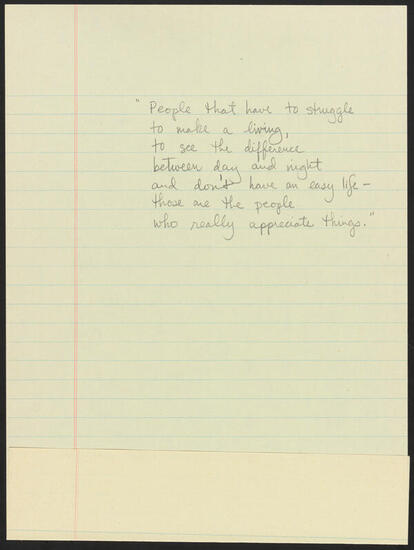 "People that have to struggle
to make a living,
to see the difference
between day and night
and don't have an easy life –
those are the people
who really appreciate things."